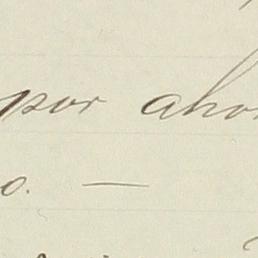 por aho
o. —